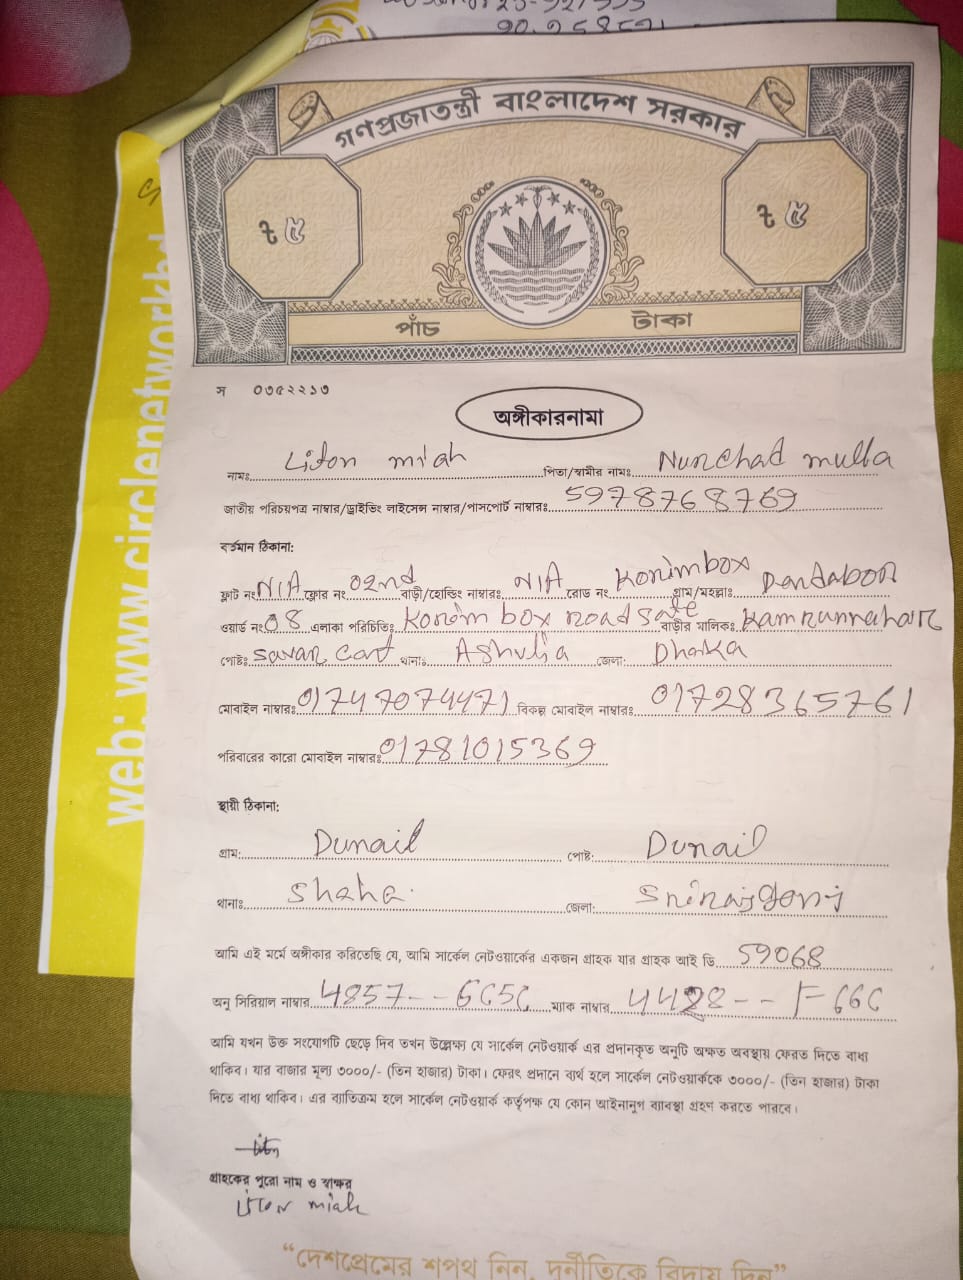 90.
গণপ্রজাতন্ত্রী বাংলাদেশ সরকার
৳ ৫ ৳ ৫
পাঁচ টাকা
web: www.circlenetworkbd
স ০৩৫২২১৩
অঙ্গীকারনামা
নামঃ Liton miah পিতা/স্বামীর নামঃ Nunchad mulla
জাতীয় পরিচয়পত্র নাম্বার/ড্রাইভিং লাইসেন্স নাম্বার/পাসপোর্ট নাম্বারঃ 5978768769
বর্তমান ঠিকানা:
ফ্লাট নং N/A ফ্লোর নং 02nd বাড়ী/হোল্ডিং নাম্বারঃ N/A রোড নং Konimbox গ্রাম/মহল্লাঃ Dendabor
ওয়ার্ড নং 08 এলাকা পরিচিতিঃ Konim box road বাড়ীর মালিকঃ Kamrunnahar
পোষ্টঃ savar cant থানাঃ Ashulia জেলা: Dhaka
মোবাইল নাম্বারঃ 01747074471 বিকল্প মোবাইল নাম্বারঃ 01728365761
পরিবারের কারো মোবাইল নাম্বারঃ 01781015369
স্থায়ী ঠিকানা:
গ্রাম: Dunail পোষ্ট: Dunail
থানাঃ Shaha. জেলা: Snirajgonj
আমি এই মর্মে অঙ্গীকার করিতেছি যে, আমি সার্কেল নেটওয়ার্কের একজন গ্রাহক যার গ্রাহক আই ডি 59068
অনু সিরিয়াল নাম্বার 4857--6C5C ম্যাক নাম্বার 4428--F66C
আমি যখন উক্ত সংযোগটি ছেড়ে দিব তখন উল্লেক্ষ্য যে সার্কেল নেটওয়ার্ক এর প্রদানকৃত অনুটি অক্ষত অবস্থায় ফেরত দিতে বাধ্য
থাকিব। যার বাজার মূল্য ৩০০০/- (তিন হাজার) টাকা। ফেরৎ প্রদানে ব্যর্থ হলে সার্কেল নেটওয়ার্ককে ৩০০০/- (তিন হাজার) টাকা
দিতে বাধ্য থাকিব। এর ব্যতিক্রম হলে সার্কেল নেটওয়ার্ক কর্তৃপক্ষ যে কোন আইনানুগ ব্যাবস্থা গ্রহণ করতে পারবে।
গ্রাহকের পুরো নাম ও স্বাক্ষর
liton miah
“দেশপ্রেমের শপথ নিন, দুর্নীতিকে বিদায় দিন”